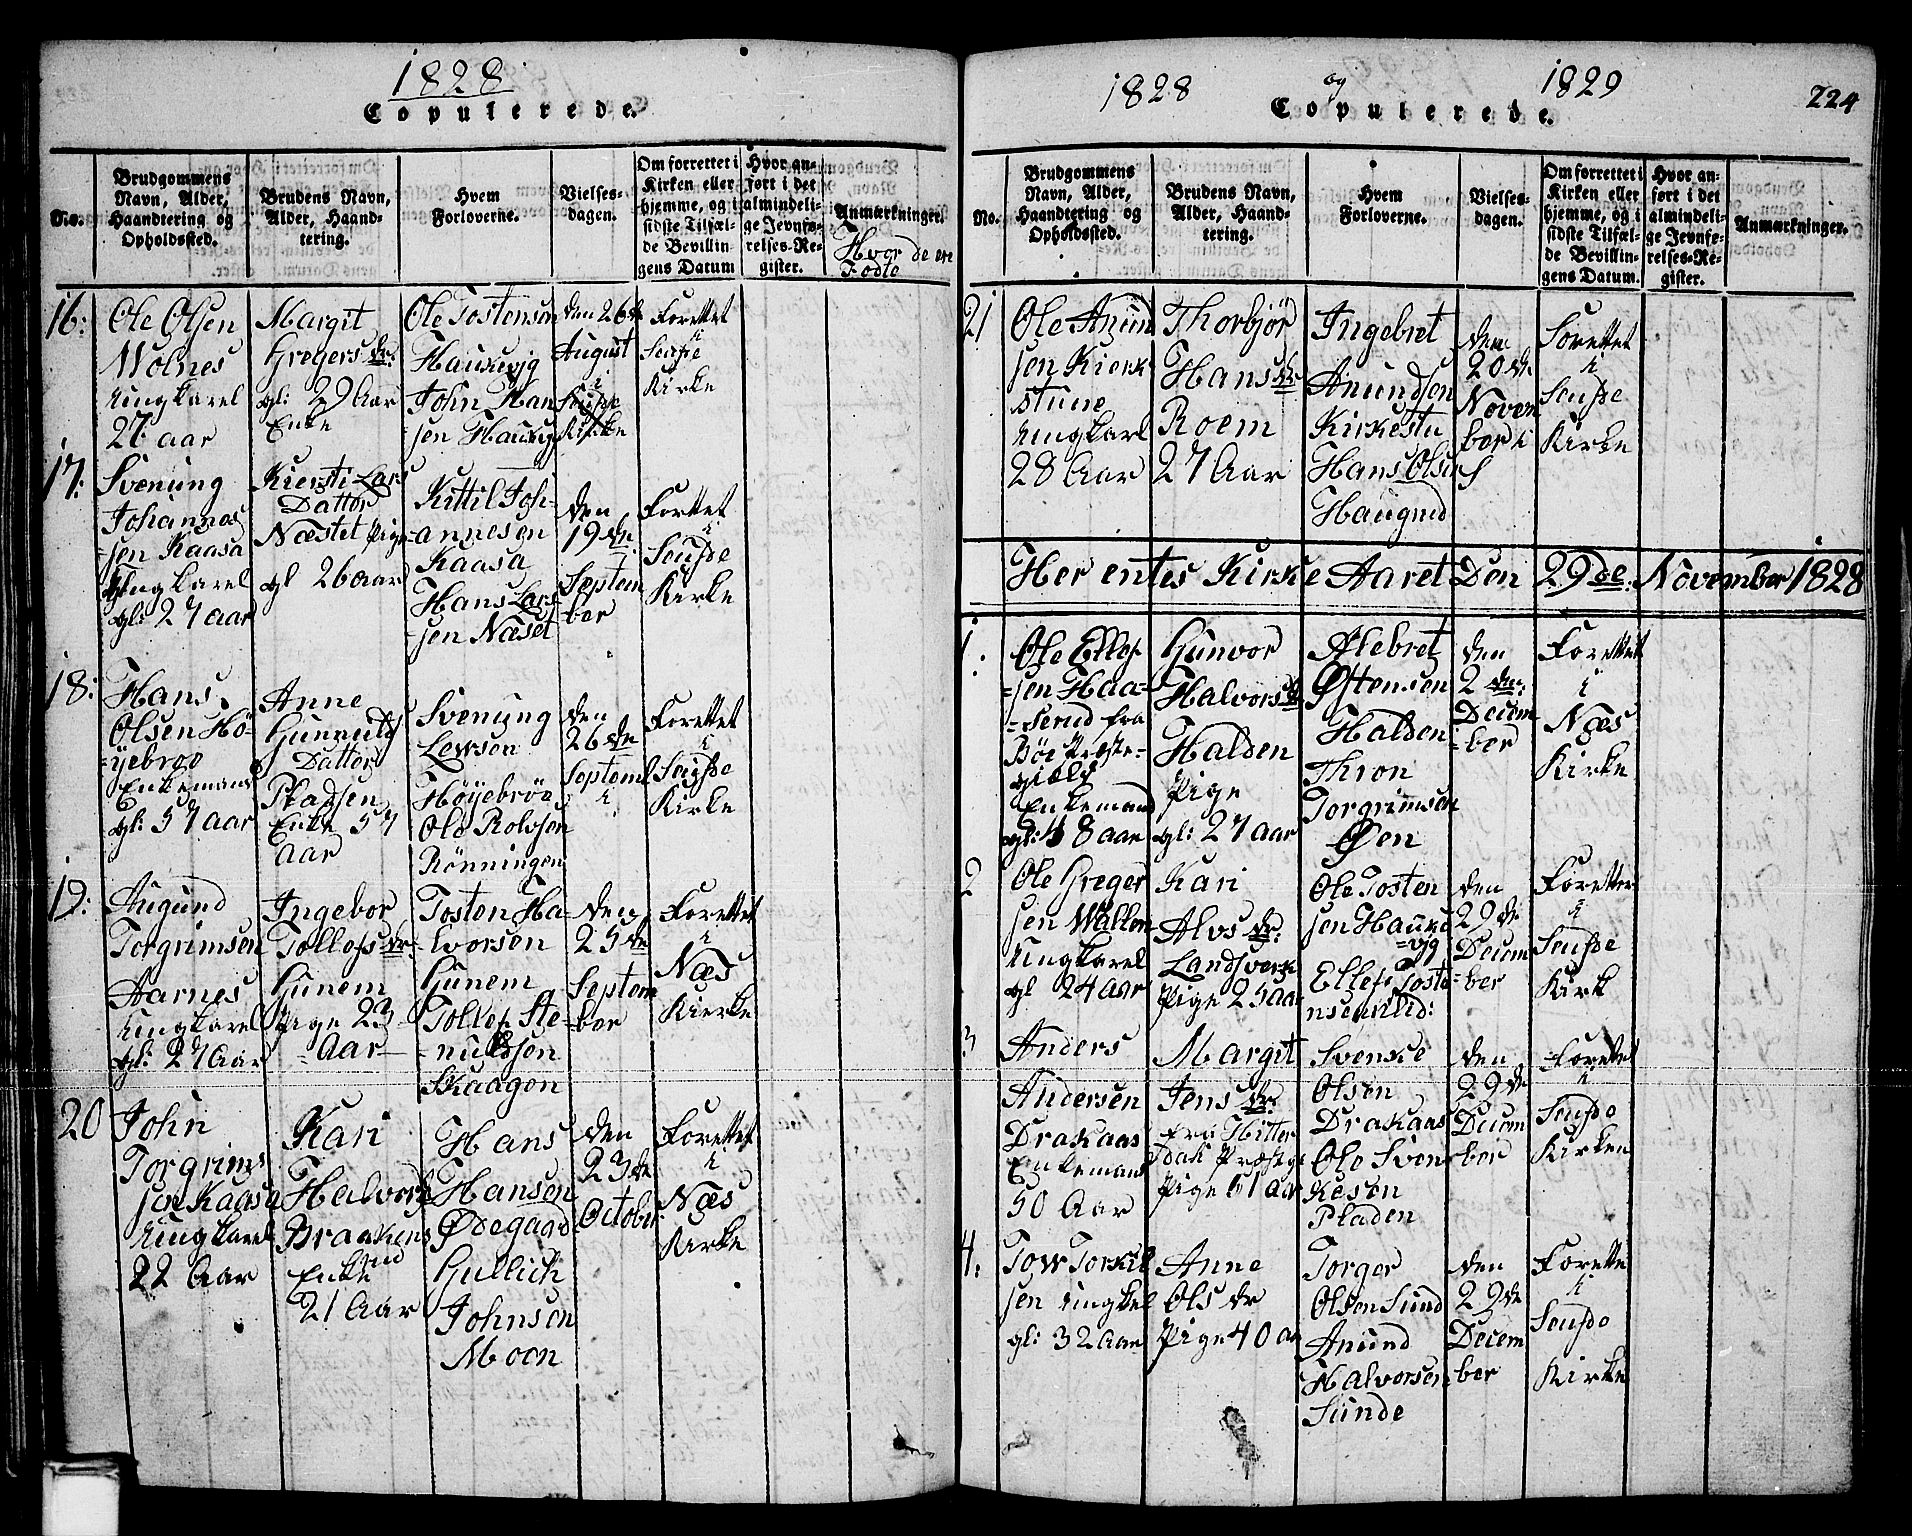 1828
Copulerede.
No.
Brudgommens Navn, Alder, Haandtering og Opholdssted.
Brudens Navn, Alder, Haandtering.
Hvem Forloverne.
Vielsesdagen.
Om forrettet i Kirken eller hjemme, og i sidste Tilfælde Bevillingens Datum
Hvor anført i det almindelige Jevnførelses-Register.
Anmærkninger.
Hvor de ere Fødte
16:
Ole Olsen
Molnes
Ungkarel
27 aar
Margit
Gregers dr.
gl: 29 Aar
Enke
Ole Tostensen
Haukevig
John Han
sen Haukvig
den 26de
August
i
Seusse
Kirke
Forettet
i
Seusse
Kirke
17:
Svenung
Johannes
=sen Kaasa
Ungkarel
gl: 27 aar
Kiersti Lars
Datter
Næstet Pige
gl 26 aar
Kittil Joh-
=annesen
Kaasa
Hans Lars
=sen Næset
den
19de
Septem
=ber
Forttet
i
Seusse
Kirke
18:
Hans
Olsen Hö-
=yebroe
Enkemand
gl: 57 aar
Anne
Gunnulds
Datter
Pladsen
Enke 57
aar
Svenung
Lewsen
Høyebrøe
Ole Rolvsen
Rönningen
den
26de
Septemb
Forettet
i
Seusse
Kirke
19:
Augund
Torgrimsen
Aarnes
Ungkarel
gl: 27 Aar
Ingebor
Tollofs dr.
Gunem
Pige 23
=Aar
Tosten Ha-
lvorsen
Gunem
Tollof Ste-
=nulssen
Skaagen
den
25de
Septem
=ber
Forettet
i
Næs
Kierke
20
John
Torgrims
sen Kaasa
Ungkarel
22 Aar
Kari
Halvors
Braakens
rud
Enke
21 Aar
Hans
Hansen
Ødegaard
Gullich
Johnsen
Moen
den
23de
October
Forettet
i
Næs
Kirke
1828 og 1829
224
Copulerede.
No.
Brudgommens Navn, Alder, Haandtering og Opholdssted.
Brudens Navn, Alder, Haandtering.
Hvem Forloverne.
Vielsesdagen.
Om forrettet i Kirken eller hjemme, og i sidste Tilfælde Bevillingens Datum.
Hvor anført i det almindelige Jevnførelses-Register.
Anmærkninger.
21
Ole Anun
sen Kierk
stuue
Ungkarl
28 Aar
Thorbjør
Hans dr
Roem
27 Aar
Ingebret
Anundsen
Kirkestu
Hans Olsen
Haugund
den
20de
Novem
ber
Forettet
i
Seusse
Kirke
Her entes Kirke Aaret Den 29de November 1828
1.
Ole Ellef
=sen Haa=
=serud fra
Böe Præste-
gield
Enkemand
gl: 48 aar
Gunvor
Halvors dr
Halden
Pige
gl: 27 aar
Alebret
Østensen
Halden
Thron
Torgrimsen
Øen
den
2den
Decem
=ber
Forettet
i
Næs
Kirke
2
Ole Greger
sen Wallen
Ungkarel
gl 24 aar
Kari
Alvs dr.
Landsverk
Pige 25 aar
Ole Tosten
sen Hauke
=vig
Ellef Toste
nsen Lid:
den
29de
Decem
=ber
Foretter
i
Seusse
Kirk
3
Anders
Andersen
Drakaas
Enkemand
50 Aar
Margit
Jens dr.
fra Hitter
dak Præsteg
Pige 61 aar
Svenke
Olsen
Drakaas
Ole Sven
kesen
Pladen
den
29de
Decem
ber
Forettet
i
Seusse
Kirken
4.
Tow Torkil
sen Ungkel
gl: 32 Aar
Anne
Ols dr
Pige 40 aa
Torger
Olsen Sund
Anund
Halvorsen
Sunde
den
29de
Decem
ber
Forette
i
Seusse
Kirke